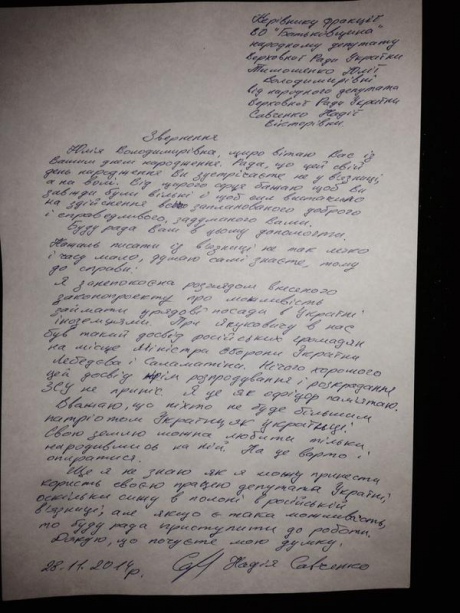 Керівнику фракції
ВО "Батьківщина"
народному депутату
Верховної Ради України
Тимошенко Юлії
Володимирівні
від народного депутата
Верховної Ради України
Савченко Надії
Вікторівни
Звернення
Юлія Володимирівна, щиро вітаю Вас із
Вашим днем народження. Рада, що цей свій
день народження Ви зустрічаєте не у в'язниці,
а на волі. Від щирого серця бажаю щоб Ви
завжди були вільні і щоб сил вистачало
на здійснення всього запланованого доброго
і справедливого, задуманого вами.
Буду рада Вам в цьому допомогти.
Нажаль писати із в'язниці не так легко
і часу мало, думаю самі знаєте, тому
до справи!
Я занепокоєна розглядом внесеного
законопроекту про можливість
займати урядові посади в Україні
іноземцями. При Януковичу в нас
був такий досвід російських громадян
на місце Міністра Оборони України
Лебедєва і Саламатіна. Нічого хорошого
цей досвід крім розпродування і розкрадання
ЗСУ не приніс. Я це як офіцер пам'ятаю.
Вважаю, що ніхто не буде більшим
патріотом України, як українці!
Свою землю можна любити тільки
народившись на ній. На це варто і
опиратися.
Ще я не знаю як я можу принести
користь своєю працею депутата України,
оскільки сижу в полоні в російській
в'язниці, але якщо є така можливість,
то буду рада приступити до роботи.
Дякую, що почуєте мою думку.
28.11.2014р. Надія Савченко